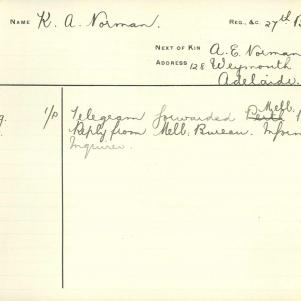 NAME K. A. Norman. REG., &C. 27th B
NEXT OF KIN A. E. Norman
ADDRESS 128 Weymouth
Adelaide.
1/P Telegram forwarded Perth Melb.
Reply from Melb. Bureau. Infor
Inquirer.